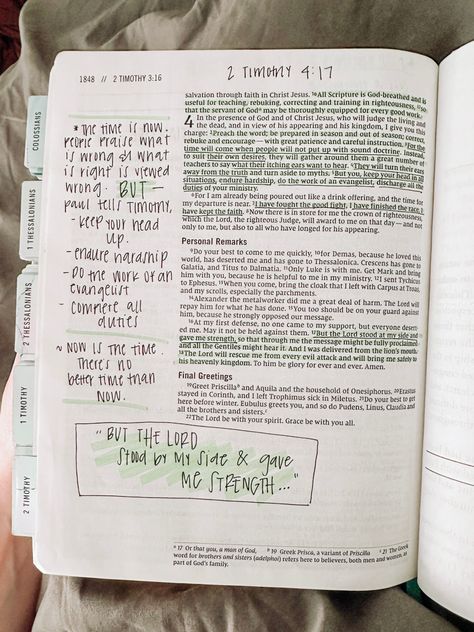 1848 // 2 TIMOTHY 3:16
2 TIMOTHY 4:17
COLOSSIANS
1 THESSALONIANS
2 THESSALONIANS
1 TIMOTHY
2 TIMOTHY
* THE TIME IS NOW.
PEOPLE PRAISE WHAT
IS WRONG & WHAT
IS RIGHT IS VIEWED
WRONG. BUT—
PAUL TELLS TIMOTHY,
- KEEP YOUR HEAD
UP.
- ENDURE HARDSHIP
- DO THE WORK OF AN
EVANGELIST
- COMPLETE ALL
DUTIES
~ NOW IS THE TIME.
THERE'S NO
BETTER TIME THAN
NOW.
"BUT THE LORD
STOOD BY MY SIDE & GAVE
ME STRENGTH..."
salvation through faith in Christ Jesus. 16All Scripture is God-breathed and is
useful for teaching, rebuking, correcting and training in righteousness, 17so
that the servant of Godᵃ may be thoroughly equipped for every good work.
4 In the presence of God and of Christ Jesus, who will judge the living and
the dead, and in view of his appearing and his kingdom, I give you this
charge: 2Preach the word; be prepared in season and out of season; correct,
rebuke and encourage — with great patience and careful instruction. 3For the
time will come when people will not put up with sound doctrine. Instead,
to suit their own desires, they will gather around them a great number of
teachers to say what their itching ears want to hear. 4They will turn their ears
away from the truth and turn aside to myths. 5But you, keep your head in all
situations, endure hardship, do the work of an evangelist, discharge all the
duties of your ministry.
6For I am already being poured out like a drink offering, and the time for
my departure is near. 7I have fought the good fight, I have finished the race, I
have kept the faith. 8Now there is in store for me the crown of righteousness,
which the Lord, the righteous Judge, will award to me on that day — and not
only to me, but also to all who have longed for his appearing.
Personal Remarks
9Do your best to come to me quickly, 10for Demas, because he loved this
world, has deserted me and has gone to Thessalonica. Crescens has gone to
Galatia, and Titus to Dalmatia. 11Only Luke is with me. Get Mark and bring
him with you, because he is helpful to me in my ministry. 12I sent Tychicus
to Ephesus. 13When you come, bring the cloak that I left with Carpus at Troas,
and my scrolls, especially the parchments.
14Alexander the metalworker did me a great deal of harm. The Lord will
repay him for what he has done. 15You too should be on your guard against
him, because he strongly opposed our message.
16At my first defense, no one came to my support, but everyone desert-
ed me. May it not be held against them. 17But the Lord stood at my side and
gave me strength, so that through me the message might be fully proclaimed
and all the Gentiles might hear it. And I was delivered from the lion's mouth.
18The Lord will rescue me from every evil attack and will bring me safely to
his heavenly kingdom. To him be glory for ever and ever. Amen.
Final Greetings
19Greet Priscillaᵇ and Aquila and the household of Onesiphorus. 20Erastus
stayed in Corinth, and I left Trophimus sick in Miletus. 21Do your best to get
here before winter. Eubulus greets you, and so do Pudens, Linus, Claudia and
all the brothers and sisters.ᶜ
22The Lord be with your spirit. Grace be with you all.
ᵃ 17 Or that you, a man of God, ᵇ 19 Greek Prisca, a variant of Priscilla ᶜ 21 The Greek
word for brothers and sisters (adelphoi) refers here to believers, both men and women, as
part of God's family.